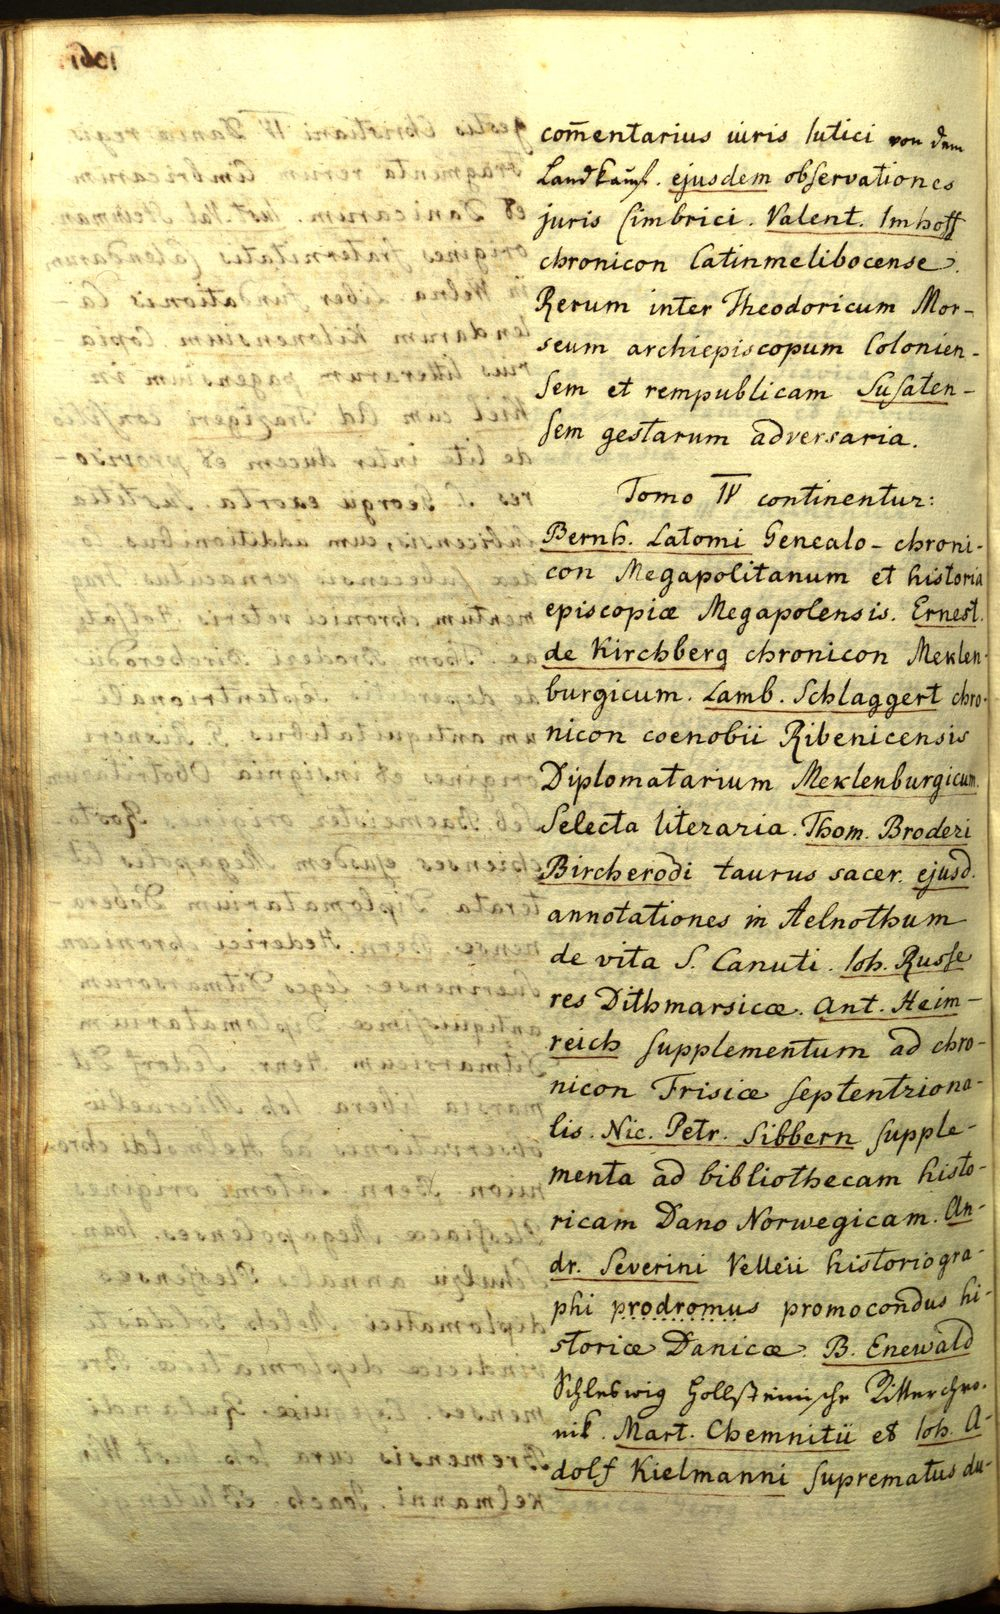 com̄entarius iuris Iutici von dem
Landkauf. ejusdem obſervationes
juris Cimbrici. Valent. Imhoff
chronicon Catinmelibocense.
Rerum inter Theodoricum Mor-
seum archiepiscopum Colonien-
ſem et rempublicam Suſaten-
ſem gestarum adversaria.
Tomo IV continentur:
Bernh. Latomi Genealo-chroni-
con Megapolitanum et historia
episcopiæ Megapolensis. Ernest.
de Kirchberg chronicon Meklen-
burgicum. Lamb. Schlaggert chro-
nicon coenobii Ribenicensis
Diplomatarium Meklenburgicum.
Selecta literaria. Thom. Broderi
Bircherodi taurus sacer. ejusd.
annotationes in Aelnothum
de vita S. Canuti. Ioh. Russe
res Dithmarsicæ. Ant. Heim-
reich ſupplementum ad chro-
nicon Frisiæ ſeptentriona-
lis. Nic. Petr. Sibbern ſupple-
menta ad bibliothecam histo-
ricam Dano Norwegicam. An-
dr. Severini Velleii historiogra-
phi prodromus promocondus hi-
storiæ Danicæ. B. Enewald
Schleswig Hollsteinische Ritterchro-
nik. Mart. Chemnitii et Ioh. A-
dolf Kielmanni ſuprematus du-